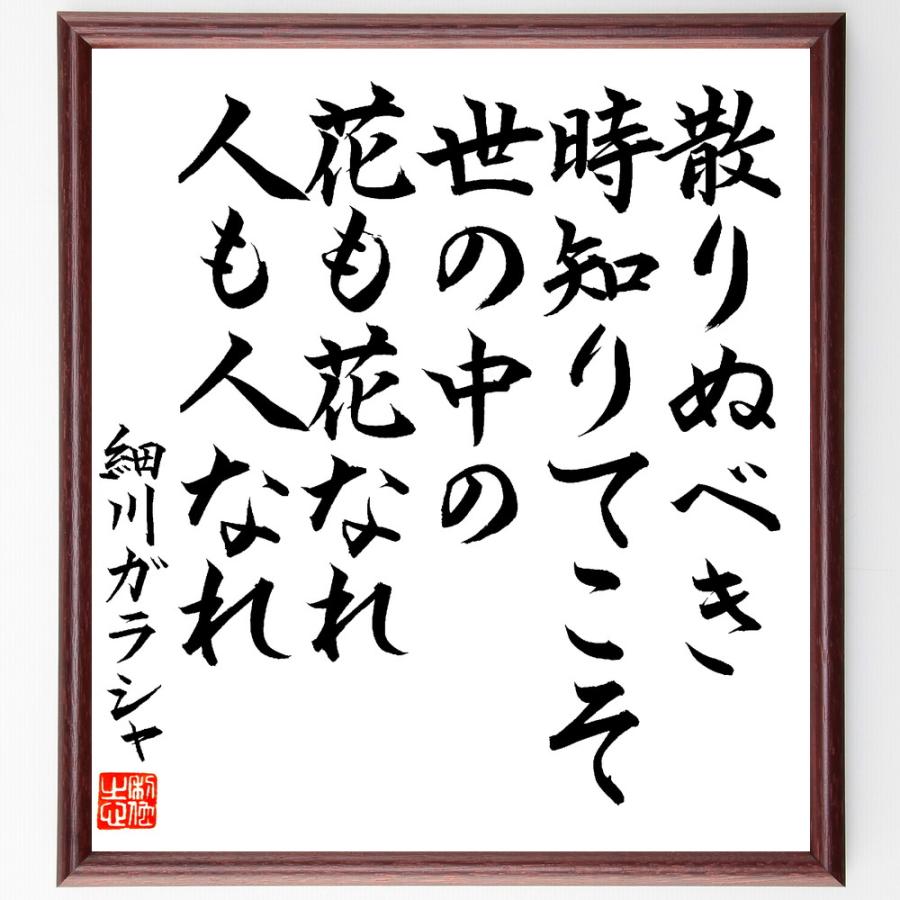 散りぬべき
時知りてこそ
世の中の
花も花なれ
人も人なれ
細川ガラシャ